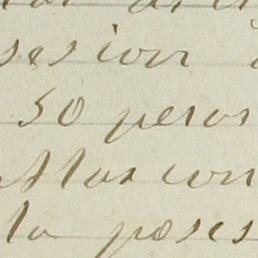 sesion
50 pesos
Mas con
la poses